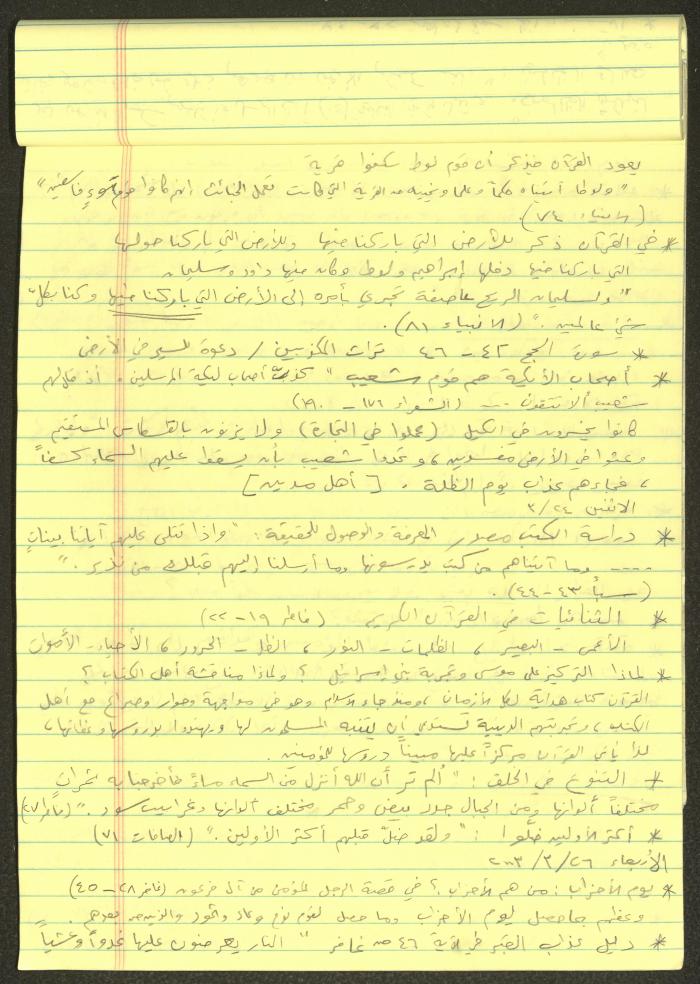 يعود القرآن فيذكر أن قوم لوط سكنوا قرية
"ولوطا آتيناه حكماً وعلما ونجيناه من القرية التي كانت تعمل الخبائث إنهم كانوا قوم سوءٍ فاسقين"
(الأنبياء ٧٤).
* في القرآن ذكر للأرض التي باركنا فيها وللأرض التي باركنا حولها
التي باركنا فيها دخلها إبراهيم ولوط وكان فيها داود وسليمان
"ولسليمان الريح عاصفة تجري بأمره إلى الأرض التي باركنا فيها وكنا بكل
شيء عالمين." (الأنبياء ٨١).
* سورة الحج ٤٢ - ٤٦ قرات المكذبين / دعوة للسير في الأرض
* أصحاب الأيكة هم قوم شعيب "كذبت أصحاب ليكة المرسلين، إذ قال لهم
شعيب ألا تتقون --- (الشعراء ١٧٦ - ١٩٠)
كانوا يخسرون في الكيل (عملوا في التجارة) ولا يزنون بالقسطاس المستقيم
وعثوا في الأرض مفسدين، وتحدوا شعيب بأن يسقط عليهم السماء كسفاً
، فجاءهم عذاب يوم الظلة. [أهل مدين]
الاثنين ٣/٢٤
* دراسة الكتب مصدر المعرفة والوصول للحقيقة: "وإذا تتلى عليهم آياتنا بيناتٍ
---- وما آتيناهم من كتب يدرسونها وما أرسلنا إليهم قبلك من نذير."
(سبأ ٤٣-٤٤).
* الثنائيات في القرآن الكريم (فاطر ١٩-٢٢)
الأعمى - البصير، الظلمات - النور، الظل - الحرور، الأحياء - الأموات
* لماذا التركيز على موسى وتجربة بني إسرائيل؟ ولماذا مناقشة أهل الكتاب؟
القرآن كتاب هداية لكل الأزمان، ومنذ جاء الإسلام وهو في مواجهة وحوار وصراع مع أهل
الكتاب، وتجربتهم الدينية تستدعي أن يتنبه المسلمون لها ويهتدوا بدروسها وعظاتها،
لذا يأتي القرآن مركزاً عليها مبيناً دروسها للمؤمنين.
* التنوع في الخلق: "ألم تر أن الله أنزل من السماء ماءً فأخرجنا به ثمرات
مختلفاً ألوانها ومن الجبال جدد بيض وحمر مختلف ألوانها وغرابيب سود." (فاطر ٢٧)
* أكثر الأولين ضلّوا: "ولقد ضلّ قبلهم أكثر الأولين." (الصافات ٧١)
الأربعاء ٢٠٠٣/٣/٢٦
* يوم الأحزاب: من هم الأحزاب؟ في قصة الرجل المؤمن من آل فرعون (غافر ٢٨-٤٥)
وعظهم بما حصل ليوم الأحزاب وما حصل لقوم نوح وعاد وثمود والذين من بعدهم.
* دليل عذاب القبر في الآية ٤٦ من غافر "النار يعرضون عليها غدواً وعشياً